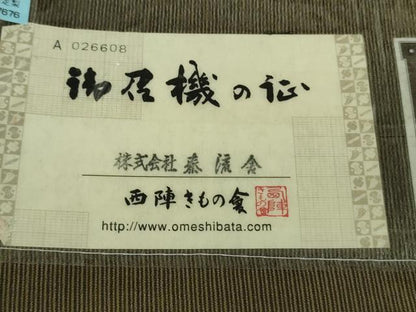 7676
A 026608
御召機の証
株式会社 秦流舎
西陣きもの會
http://www.omeshibata.com